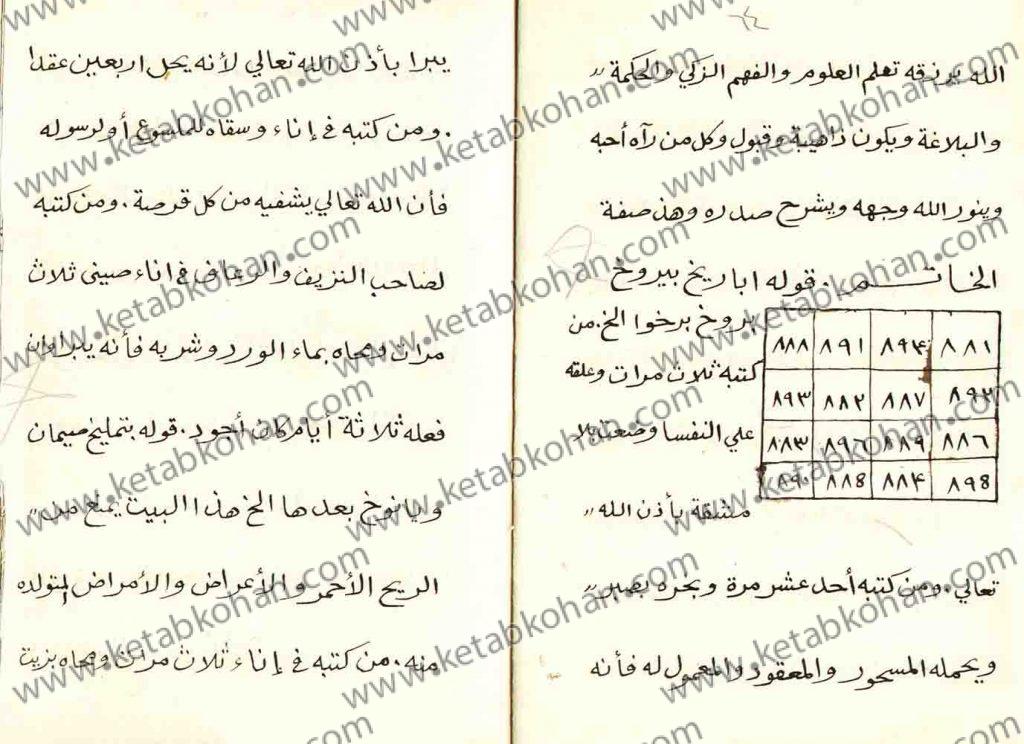 ٢٤
الله يرزقه تعلم العلوم والفهم الزكي والحكمة
والبلاغة ويكون ذاهيبة وقبول وكل من رآه أحبه
وينور الله وجهه ويشرح صدره وهذه صفة
الخاتم . قوله اباريخ بيروخ
بروخ برخوا الخ . من
كتبه ثلاث مرات وعلقه
علي النفسا وضعت بلا
مشقة بأذن الله
٨٨٨ ٨٩١ ٨٩٤ ٨٨١
٨٩٣ ٨٨٢ ٨٨٧ ٨٩٢
٨٨٣ ٨٩٦ ٨٨٩ ٨٨٦
٨٩٠ ٨٨٤ ٨٩٤
تعالي . ومن كتبه أحد عشر مرة وبخره بصبر
ويحمله المسحور والمعقود والمعمول له فأنه
يبرا بأذن الله تعالي لأنه يحل اربعين عقدا
. ومن كتبه في إناء وسقاه للملسوع أو لرسوله
فأن الله تعالي يشفيه من كل قرصة . ومن كتبه
لصاحب النزيف والرعاف في اناء صيني ثلاث
مرات ومحاه بماء الورد وشربه فأنه يبرا وان
فعله ثلاثة أيام كان أجود . قوله بتمليخ
ويانوخ بعدها الخ هذا البيت يمنع من
الريح الأحمر والأعراض والأمراض المتولده
منه . من كتبه في إناء ثلاث مرات ومحاه بزيت
www.ketabkohan.com